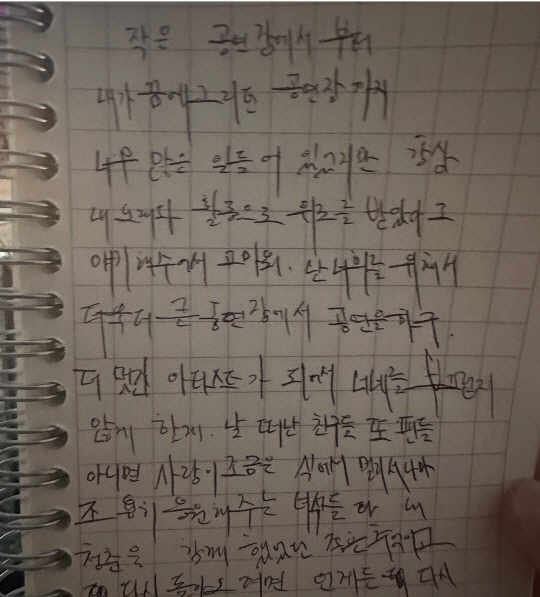 작은 공연장에서 부터
내가 꿈에 그리던 공연장 까지
너무 많은 일들이 있었지만 항상
내 노래와 활동으로 위로를 받았다고
얘기해줘서 고마워. 난 너희를 위해서
더욱더 큰 공연장에서 공연을 하구.
더 멋진 아티스트가 되어서 너네를 부끄럽지
않게 할게. 날 떠난 친구들 또 팬들
아니면 사랑이 조금은 식어서 멀리서나마
조용히 응원해주는 녀석들 다 내
청춘을 함께 했었던 좋은 추억이고
다시 돌아오려면 언제든 다시